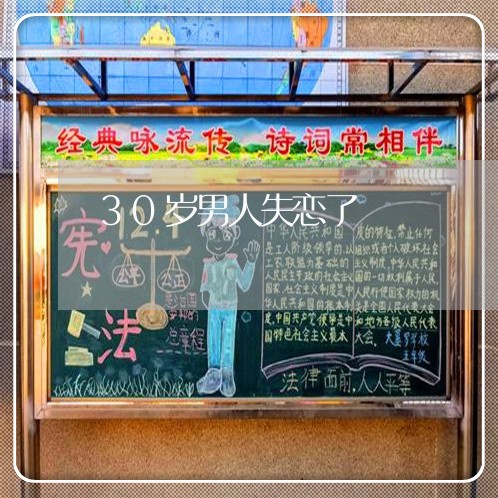 经典咏流传 诗词常相伴
30岁男人失恋了
宪法
12.4
公平 公正
总章程
中华人民共和国
是工人阶级领导的、以
工农联盟为基础的
人民民主专政的社会主义
国家。社会主义制度是中
华人民共和国的根本制
度。中国共产党领导是中
国特色社会主义最本
质的特征。禁止任何
组织或者个人破坏社会
主义制度。中华人民共和
国的一切权利属于人民。
人民行使国家权力的机
关是全国人民代表大会
和地方各级人民代表
大会。
学校
五年级
法律面前,人人平等